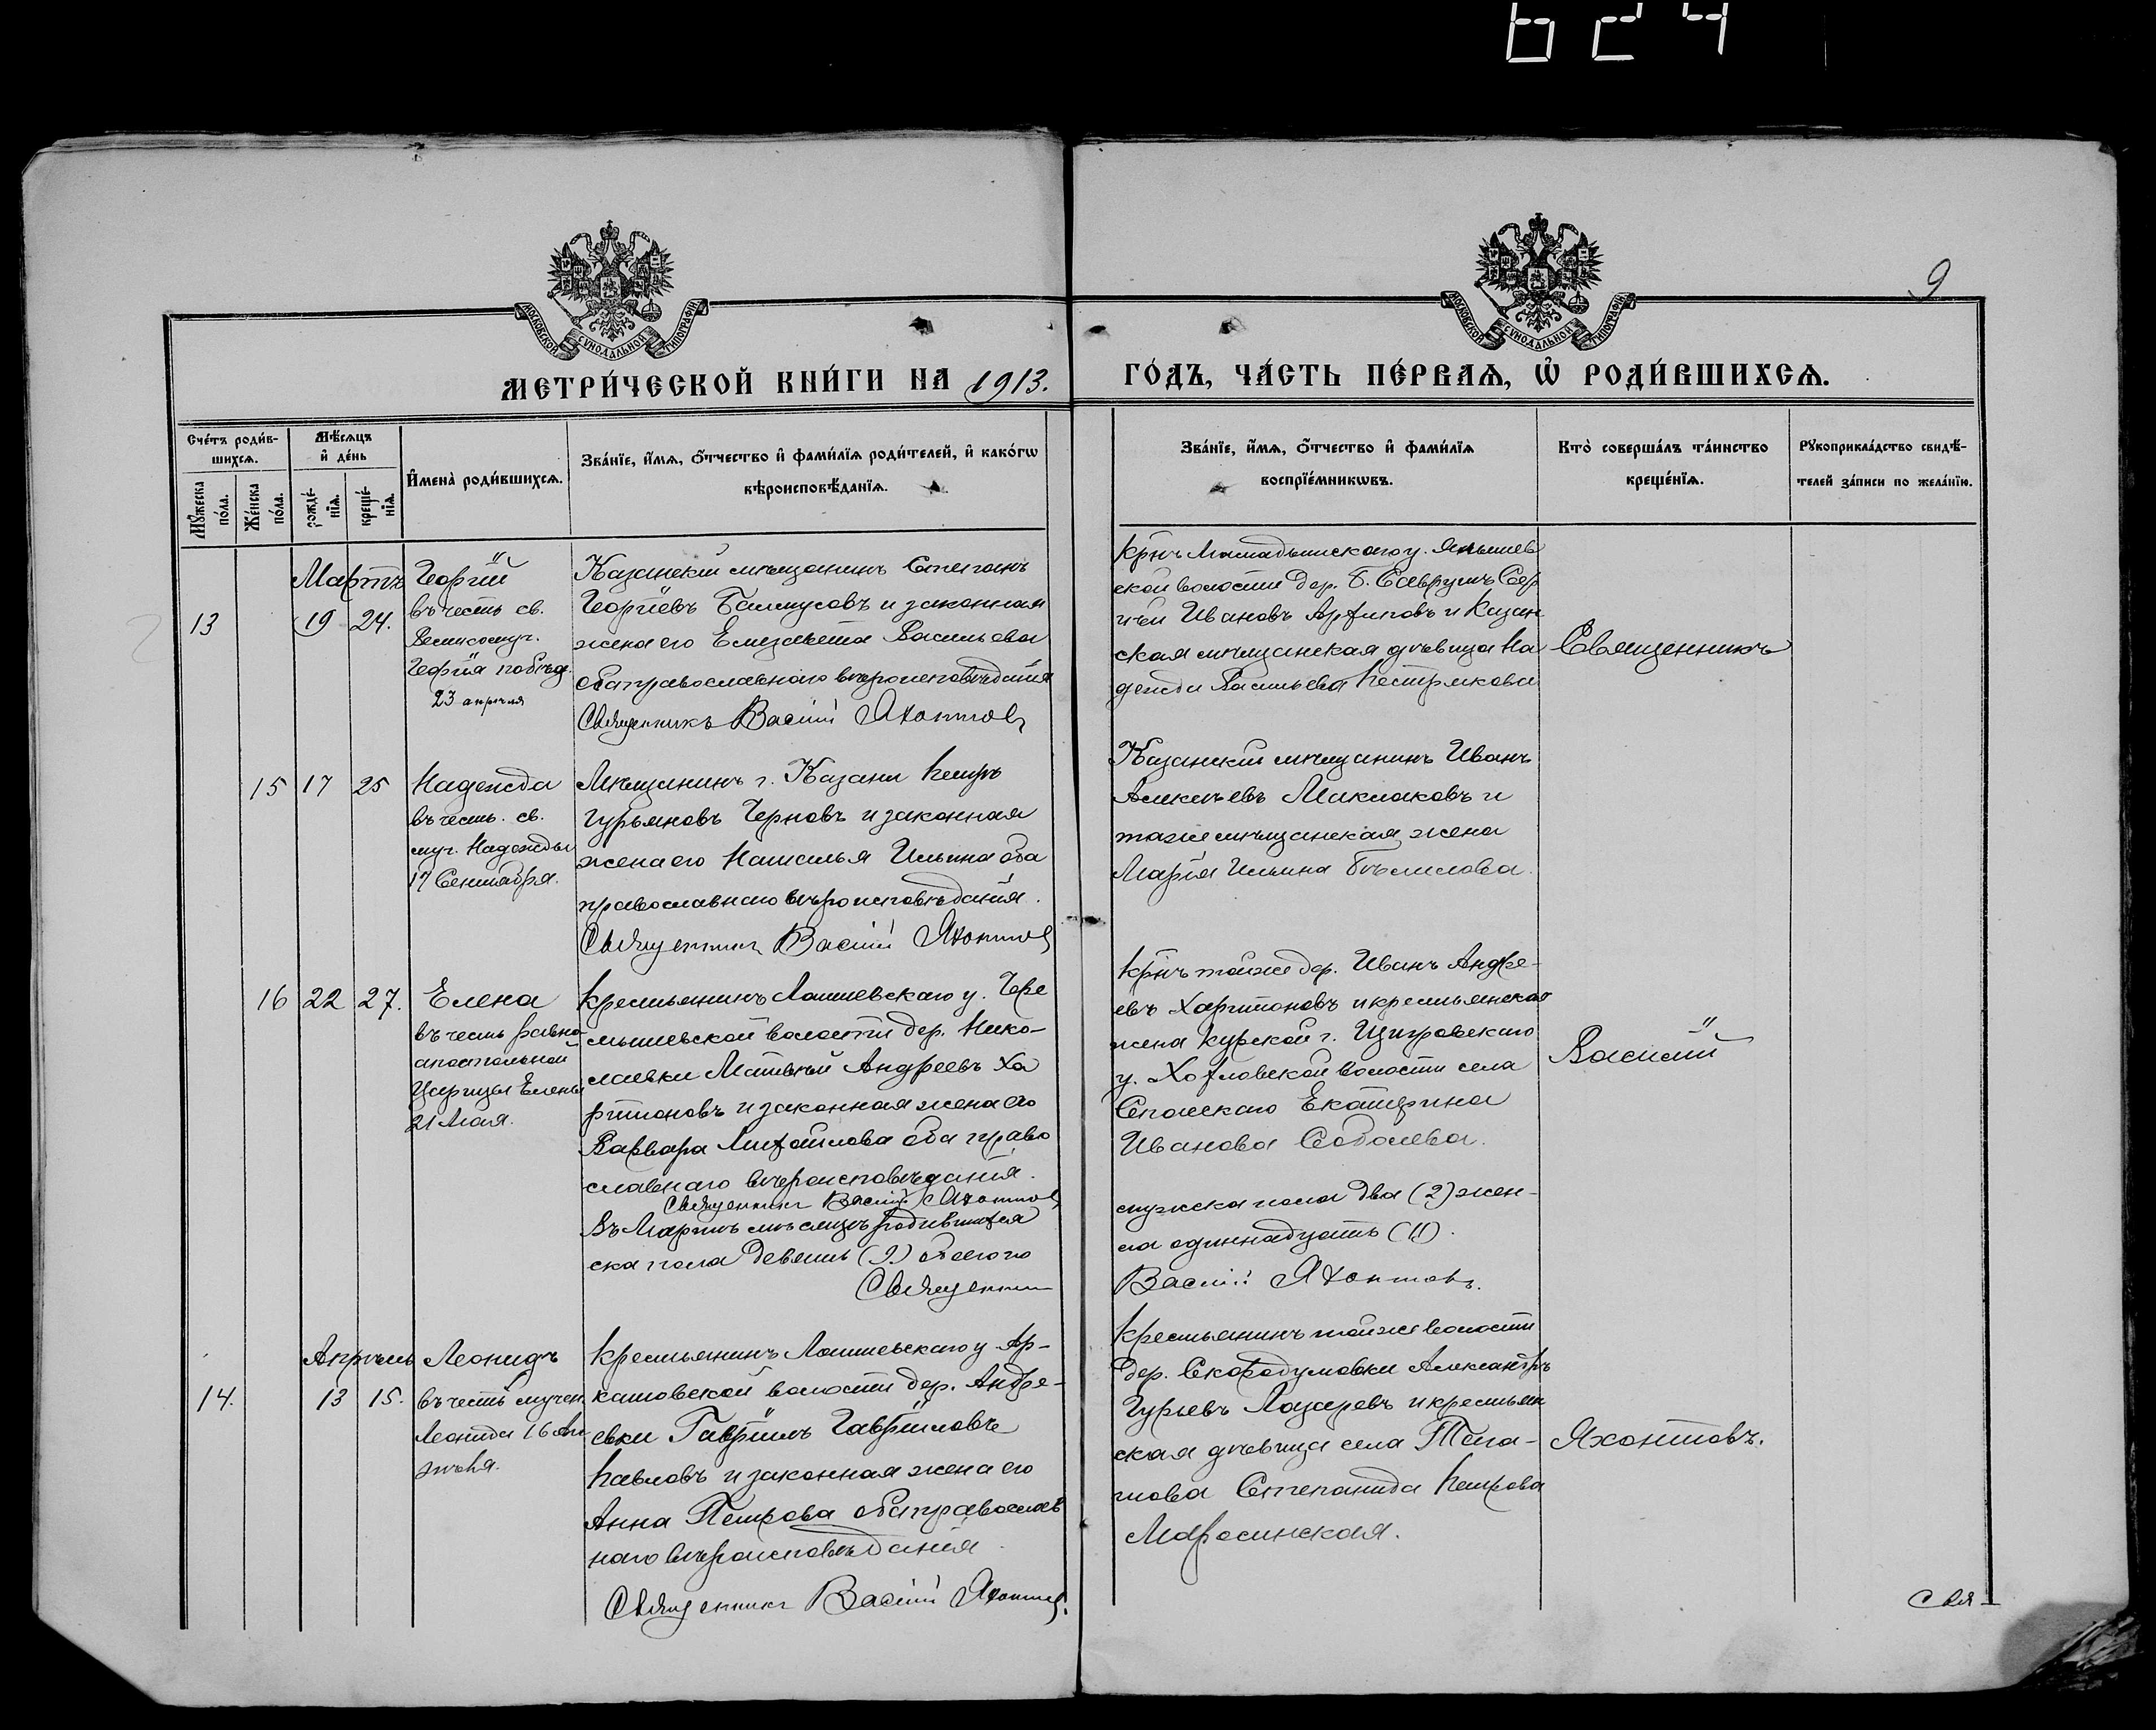 624
9
МОСКОВСКОЙ СѴНОДАЛЬНОЙ ТИПОГРАФІИ
МОСКОВСКОЙ СѴНОДАЛЬНОЙ ТИПОГРАФІИ
МЕТРИ́ЧЕСКОЙ КНИ́ГИ НА 1913.
ГО́ДЪ, ЧА́СТЬ ПЕ́РВАѦ, Ѡ҆ РОДИ́ВШИХСѦ.
Сче́тъ роди́в-
шихсѧ.
Мꙋ́жеска по́ла.
Же́нска по́ла.
Мѣ́сѧцъ
и҆ де́нь
рожде́-
нїѧ.
креще́-
нїѧ.
И҆мена̀ роди́вшихсѧ.
Зва́нїе, и҆́мѧ, ѻ҆́тчество и҆ фами́лїѧ роди́телей, и҆ како́гѡ
вѣроисповѣ́данїѧ.
Зва́нїе, и҆́мѧ, ѻ҆́тчество и҆ фами́лїѧ
воспрїе́мникѡвъ.
Кто̀ соверша́лъ та́инство
креще́нїѧ.
Рꙋкоприкла́дство свидѣ́-
телей за́писи по жела́нїю.
Мартъ
13
19 24.
Георгій
въ честь св.
Великомуч.
Георгія побѣд.
23 апрѣля
Казанскій мѣщанинъ Степанъ
Георгіевъ Балмусовъ и законная
жена его Елизавета Васильева
оба православнаго вѣроисповѣданія
Священникъ Василій Яхонтовъ
Крнъ Мамадышскаго у.
ской волости дер. Б. Саврушъ Сер
гѣй Ивановъ Архиповъ и Казан
ская мѣщанская дѣвица На
дежда Васильева Пестрякова
Священникъ
15 17 25
Надежда
въ честь св.
муч. Надежды
17 Сентября.
Мѣщанинъ г. Казани Петръ
Гурьяновъ Черновъ и законная
жена его Наталья Ильина оба
православнаго вѣроисповѣданія.
Священникъ Василій Яхонтовъ
Казанскій мѣщанинъ Иванъ
Алексѣевъ Маклаковъ и
таже мѣщанская жена
Марія Ильина Бѣлилова.
16 22 27.
Елена
въ честь равно-
апостольной
Царицы Елены
21 Мая.
Крестьянинъ Лаишевскаго у. Чере
мышевской волости дер. Нико-
лаевки Матвѣй Андреевъ Ха
ритоновъ и законная жена его
Варвара Михайлова оба право
славнаго вѣроисповѣданія.
Священникъ Василій Яхонтовъ
Крнъ тойже дер. Иванъ Андре-
евъ Харитоновъ и крестьянская
жена Курской г. Щигровскаго
у. Хохловской волости села
Спасскаго Екатерина
Иванова Соболева.
Василій
Въ Мартѣ мѣсяцѣ родившихся
мужска пола два (2) жен-
ска пола девять (9) обоего по
ла одиннадцать (11).
Священникъ
Василій Яхонтовъ.
Апрѣль
14.
13 15.
Леонидъ
въ честь мучен.
Леонида 16 Ап
рѣля.
Крестьянинъ Лаишевскаго у Ар-
каповской волости дер. Андре-
евки Гавріилъ Гавріиловъ
Павловъ и законная жена его
Анна Петрова оба православ
наго вѣроисповѣданія.
Священникъ Василій Яхонтовъ.
Крестьянинъ тойже волости
дер. Скородумовки Александръ
Гурьевъ Лазаревъ и крестьян
ская дѣвица села
Степанида Петрова
Маросинская.
Яхонтовъ.
Свя-